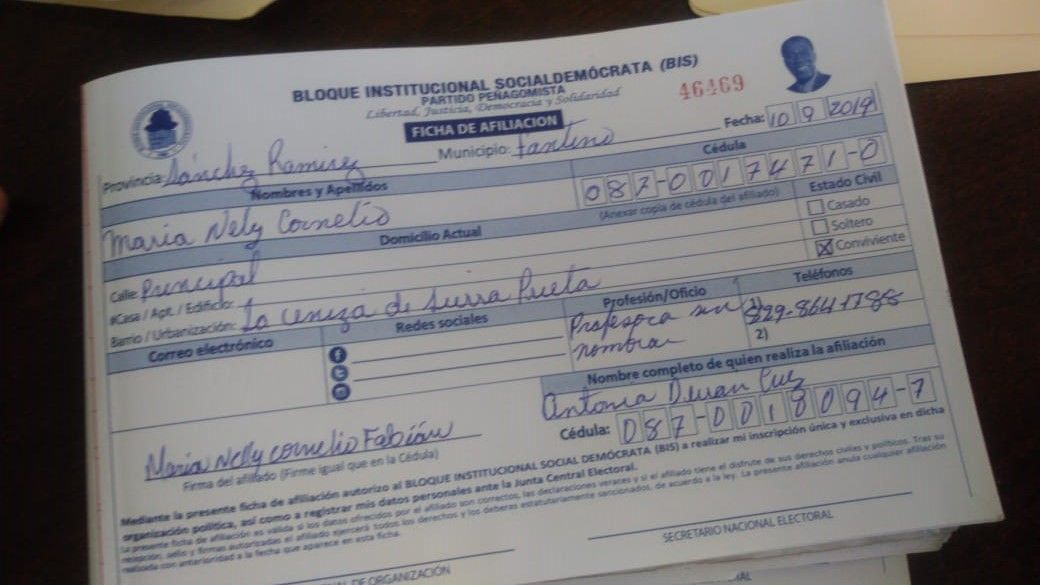 BLOQUE INSTITUCIONAL SOCIALDEMÓCRATA (BIS)
PARTIDO PEÑAGOMISTA
Libertad, Justicia, Democracia y Solidaridad
46469
FICHA DE AFILIACION
Fecha: 10 9 2019
Provincia: Sánchez Ramirez Municipio: Fantino
Nombres y Apellidos
Cédula
087-0017471-0
(Anexar copia de cédula del afiliado)
Maria Nely Cornelio
Estado Civil
Casado
Soltero
Conviviente
Domicilio Actual
Calle: Principal
#Casa / Apt. / Edificio:
Barrio / Urbanización: La ceniza de Sierra Prieta
Correo electrónico
Redes sociales
Profesión/Oficio
Profesora sin
nombrar
Teléfonos
1) 829-864-1788
2)
Nombre completo de quien realiza la afiliación
Antonia Duran Cruz
Cédula: 087-0018094-7
Maria Nelly cornelio Fabián
Firma del afiliado (Firme igual que en la Cédula)
Mediante la presente ficha de afiliación autorizo al BLOQUE INSTITUCIONAL SOCIAL DEMÓCRATA (BIS) a realizar mi inscripción única y exclusiva en dicha
organización política, así como a registrar mis datos personales ante la Junta Central Electoral.
La presente ficha de afiliación es válida si los datos ofrecidos por el afiliado son correctos, las declaraciones veraces y si el afiliado tiene el disfrute de sus derechos civiles y políticos. Tras su
recepción, sello y firmas autorizadas el afiliado ejercerá todos los derechos y los deberes estatutariamente sancionados, de acuerdo a la ley. La presente afiliación anula cualquier afiliación
realizada con anterioridad a la fecha que aparece en esta ficha.
DE ORGANIZACIÓN
SECRETARIO NACIONAL ELECTORAL